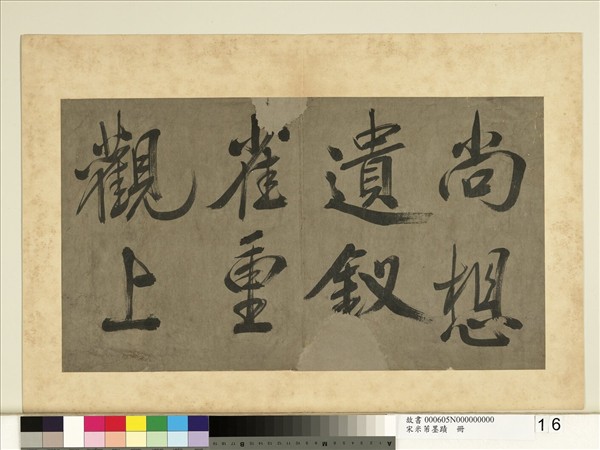 尚想
遺釵
雀重
觀上
故書 000605N000000000
宋米芾墨蹟 冊
16